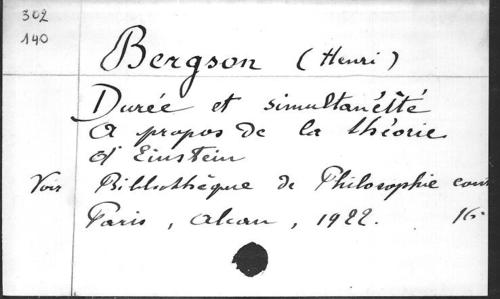 302
140
Bergson (Henri)
Durée et simultanéité
A propos de la théorie
d'Einstein
Voir Bibliothèque de Philosophie con
Paris, Alcan, 1922. 16.